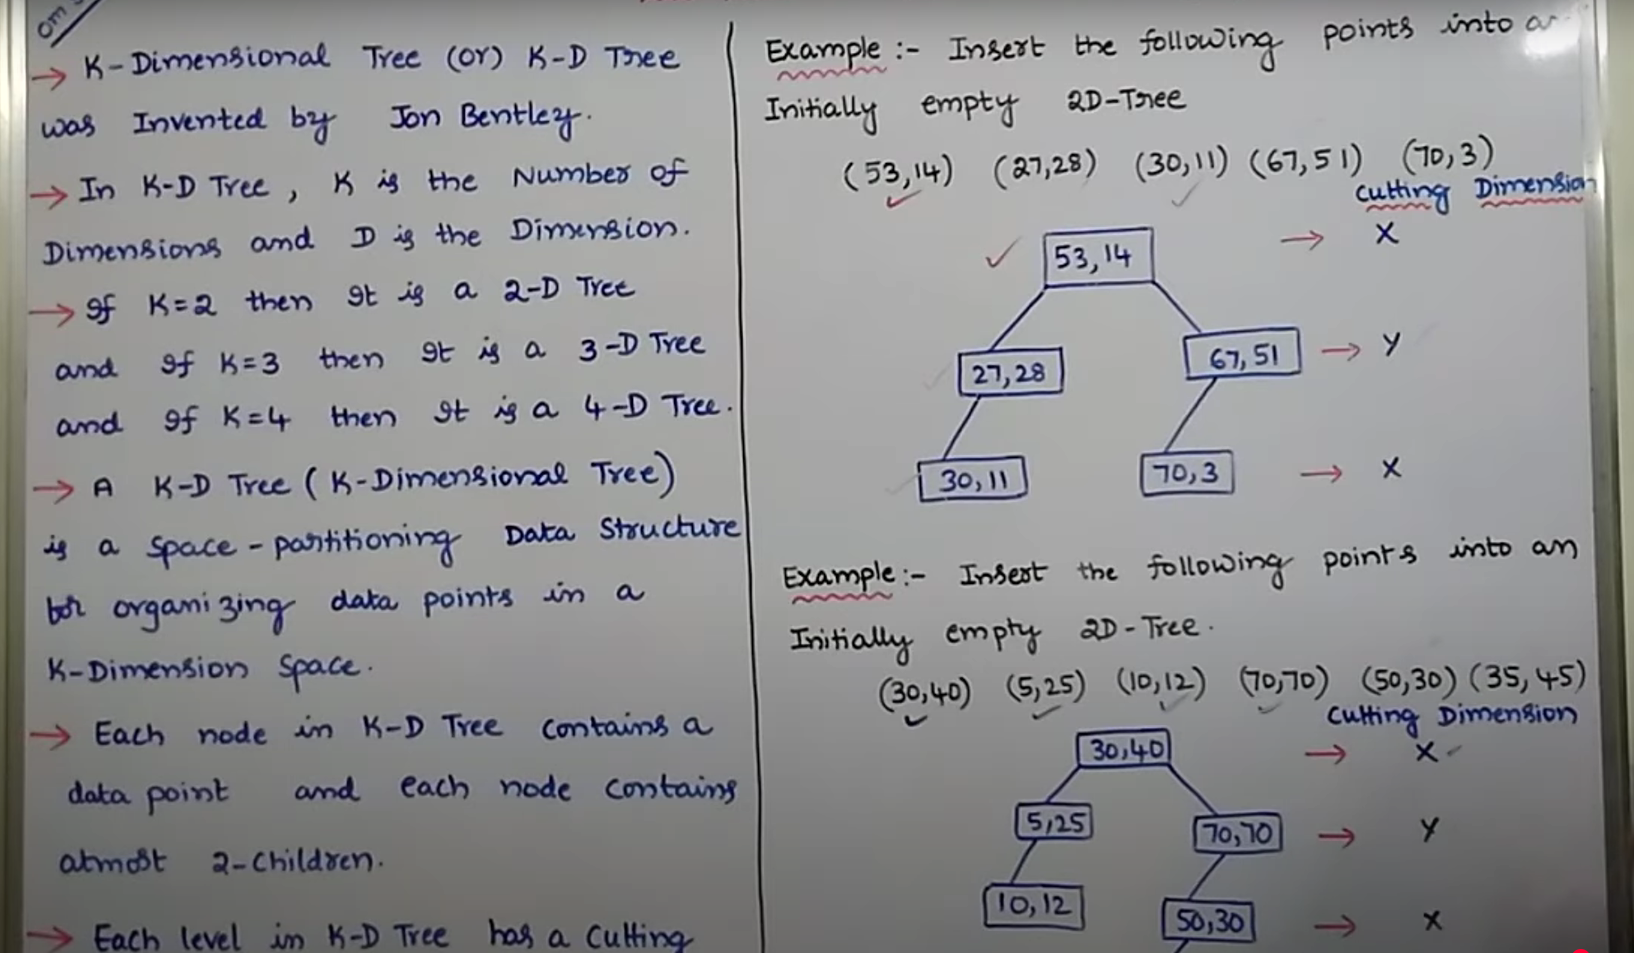 om
→ K-Dimensional Tree (or) K-D Tree
was Invented by Jon Bentley.
→ In K-D Tree, K is the Number of
Dimensions and D is the Dimension.
→ If K=2 then It is a 2-D Tree
and If K=3 then It is a 3-D Tree
and If K=4 then It is a 4-D Tree.
→ A K-D Tree (K-Dimensional Tree)
is a space-partitioning Data Structure
for organizing data points in a
K-Dimension Space.
→ Each node in K-D Tree contains a
data point and each node contains
atmost 2-children.
→ Each level in K-D Tree has a cutting
Example :- Insert the following points into a
Initially empty 2D-Tree
(53,14) (27,28) (30,11) (67,51) (70,3)
Cutting Dimension
53,14 → X
27,28 67,51 → Y
30,11 70,3 → X
Example :- Insert the following points into an
Initially empty 2D-Tree.
(30,40) (5,25) (10,12) (70,70) (50,30) (35,45)
Cutting Dimension
30,40 → X
5,25 70,70 → Y
10,12 50,30 → X